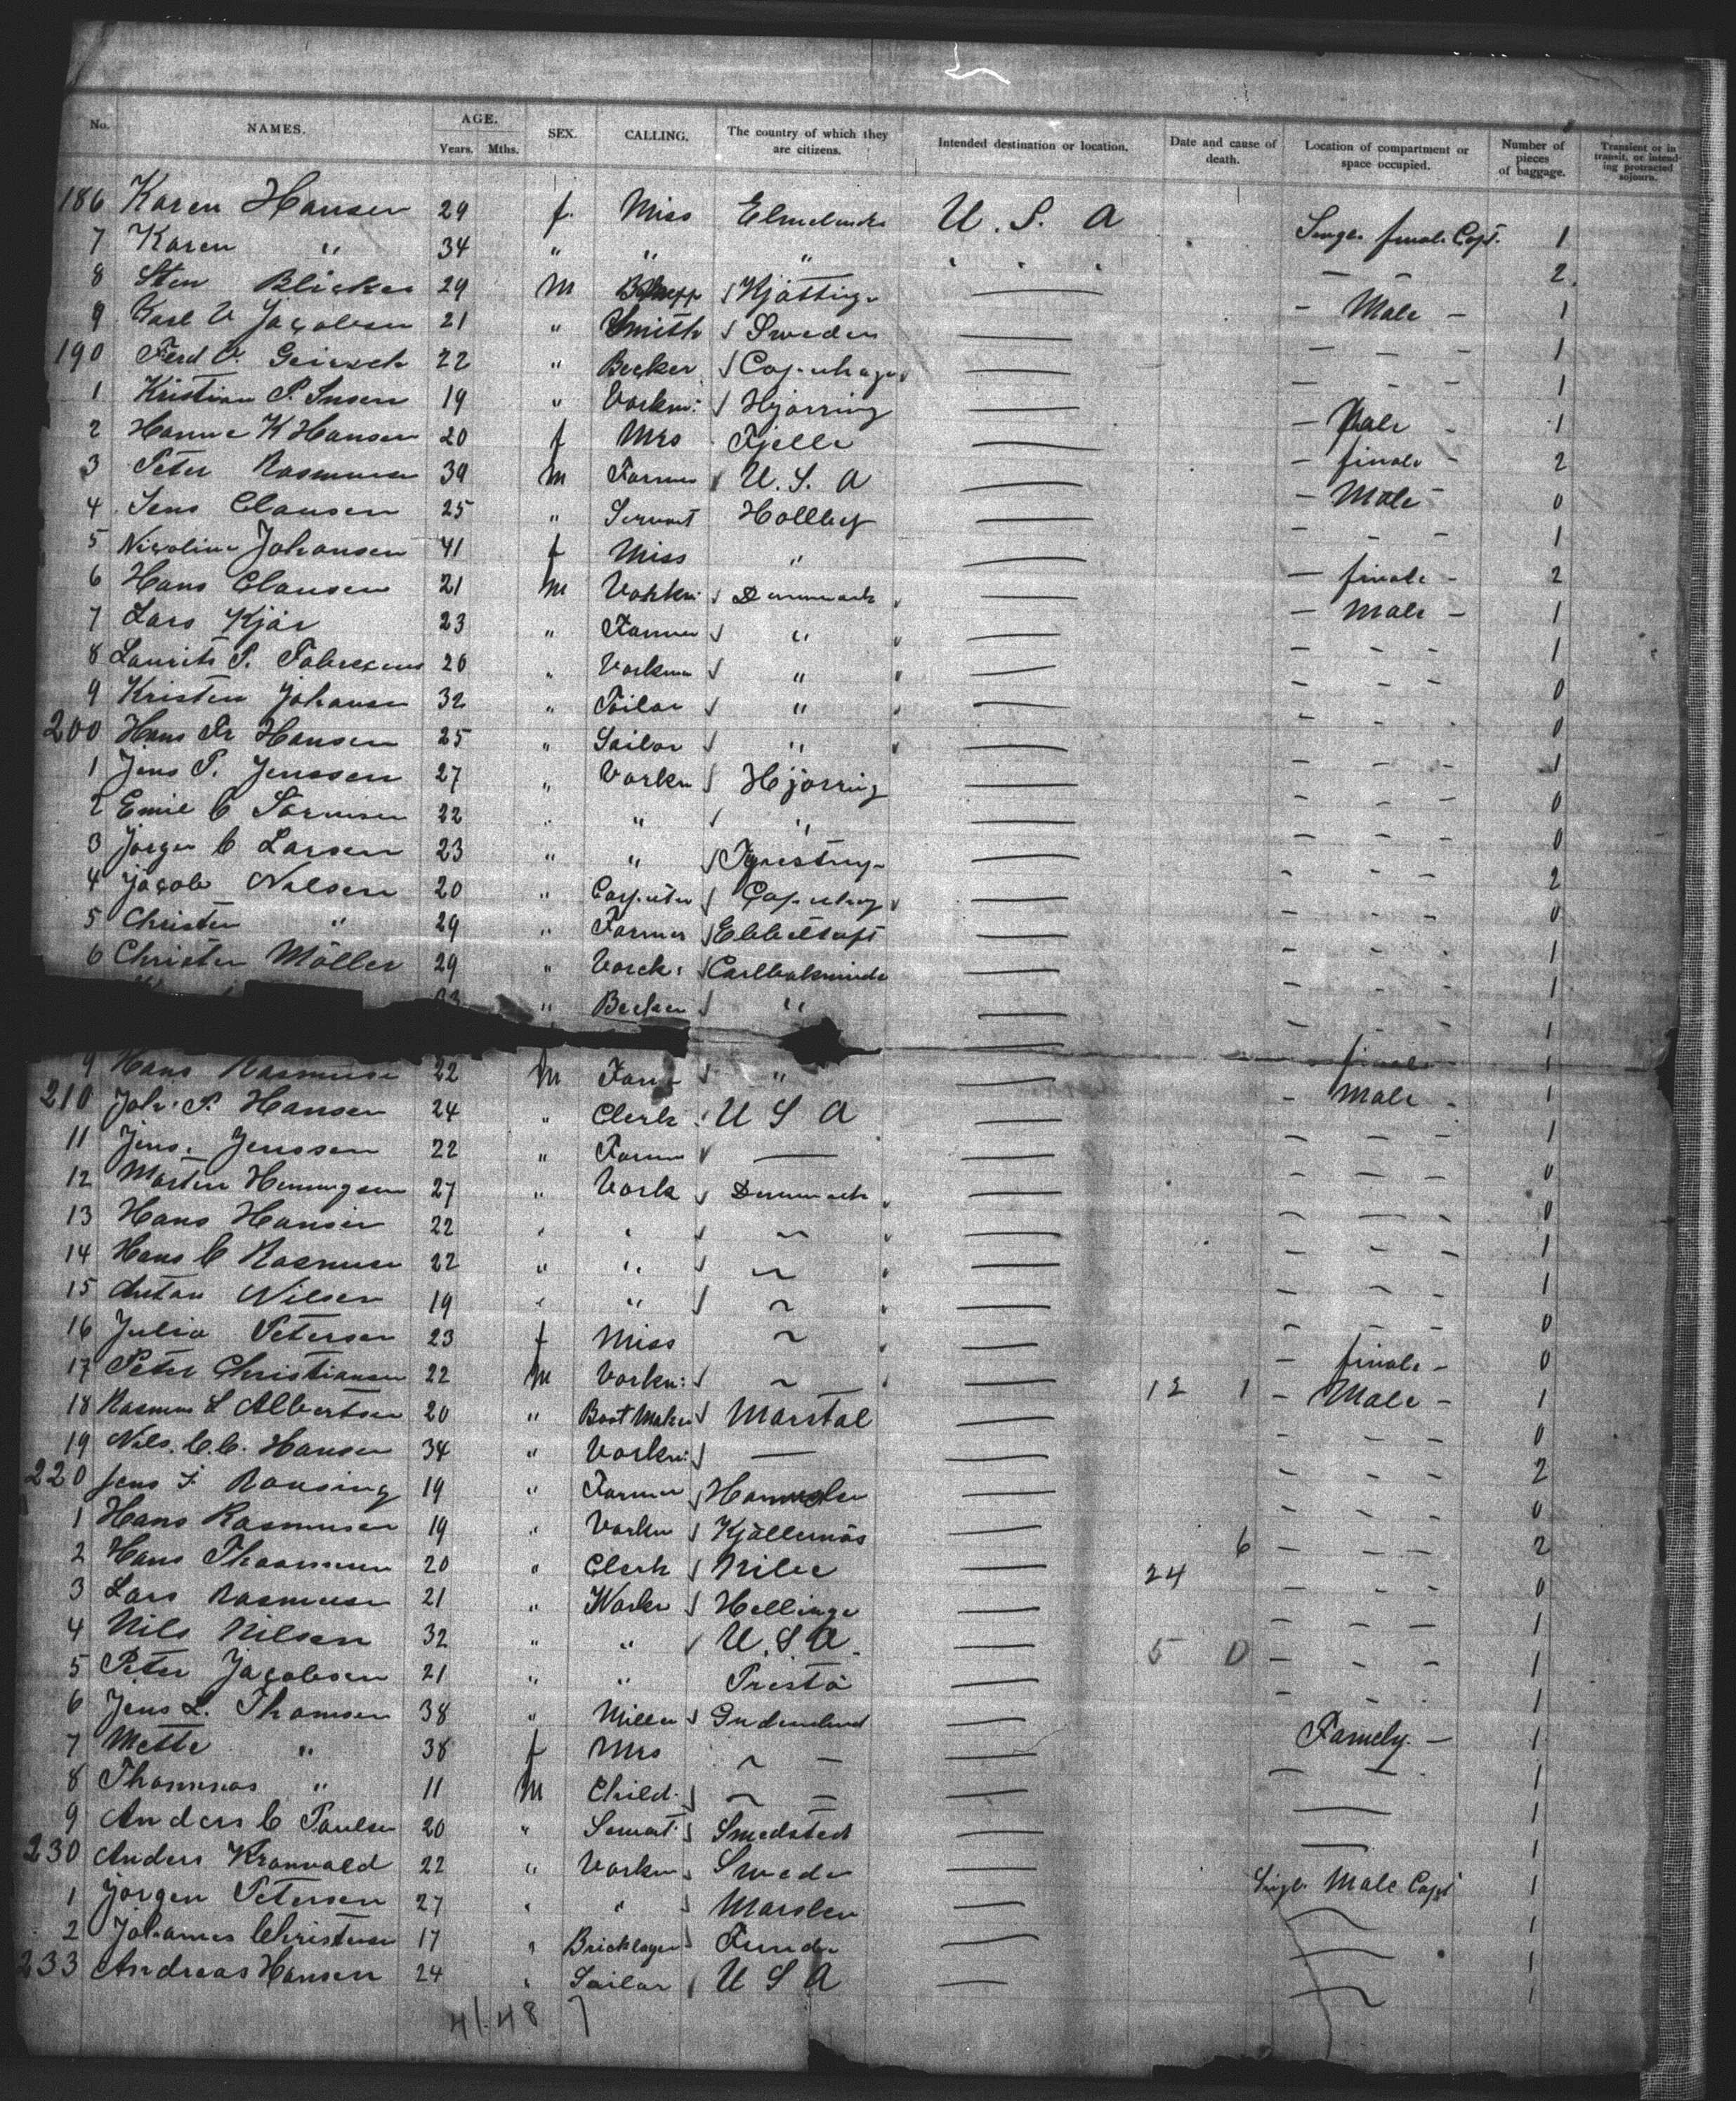 No. NAMES. AGE. Years. Mths. SEX. CALLING. The country of which they are citizens. Intended destination or location. Date and cause of death. Location of compartment or space occupied. Number of pieces of baggage. Transient or in transit, or intending protracted sojourn.
186 Karen Hansen 29 f. Miss U. S. A Single female Copt. 1
7 Karen " 34 " " " 2
8 Sten Blicker 29 M — Male — 1
9 Karl V Jacobsen 21 " Smith Sweden — — — 1
190 Ferd V. 22 " Becker Copenhagen — — — 1
1 Kristian P. 19 " Workm: Hjorring — Male — 1
2 Hanne K Hansen 20 f Mrs — female — 2
3 Peter Rasmusen 39 M Farmer U. S. A — Male — 0
4 Jens Clausen 25 " Servant — — — 1
5 Nicoline Johansen 41 f Miss " — female — 2
6 Hans Clausen 21 M Vorkm: Denmark — Male — 1
7 Lars Kjär 23 " Farmer " — — — 1
8 Laurits P. 26 " Vorkman " — — — 0
9 Kristen Johansen 32 " Tailor " — — — 0
200 Hans Hansen 25 " Sailor " — — — 1
1 Jens P. Jenssen 27 " Vorkm Hjorring — — — 0
2 Emil C Sörensen 22 " " " — — — 0
3 Jörgen C Larsen 23 " " — — — 2
4 Jacob Nilsen 20 " Carpenter Copenhag — — — 0
5 Christen " 29 " Farmer Ebbeltoft — — — 1
6 Christen Möller 29 " Vorck: — — — 1
" Becker " — — — 1
9 Hans Rasmusen 22 M Farm " 1
210 Joh. P. Hansen 24 " Clerk U S A — Male — 1
11 Jens. Jenssen 22 " Farmer — — — — 0
12 Morten Henningsen 27 " Vork Denmark — — — 0
13 Hans Hansen 22 " " ~ — — — 1
14 Hans C Rasmusen 22 " " ~ — — — 1
15 Anton Nilsen 19 " " ~ — — — 0
16 Julia Petersen 23 f Miss ~ — female — 0
17 Peter Christiansen 22 M Vorkm: ~ 12 1 — Male — 1
18 Rasmus L Albertsen 20 " Boot Maker Marstal — — — 0
19 Nils. C. C. Hansen 34 " Vorkm: — — — — 2
220 Jens Ronsing 19 " Farmer — — — 0
1 Hans Rasmusen 19 " Vorkm 6 — — — 2
2 Hans 20 " Clerk 24 — — — 0
3 Lars Rasmusen 21 " Workm Hellinge — — — 1
4 Nils Nilsen 32 " " U. S. A. 5 0 — — — 1
5 Peter Jacobsen 21 " " Prestö — — — 1
6 Jens L. Thomsen 38 " Miller Famely. — 1
7 Mette " 38 f Mrs ~ — — — 1
8 Thommas " 11 M Child. ~ — — 1
9 Anders C Paulsen 20 " Servant Smedsted — 1
230 Anders Kronvald 22 " Vorkm Sweden Single Male Copt 1
1 Jörgen Petersen 27 " " 1
2 Johannes Christensen 17 " Bricklayer 1
233 Andreas Hansen 24 " Sailor U S A 1
41.48 7